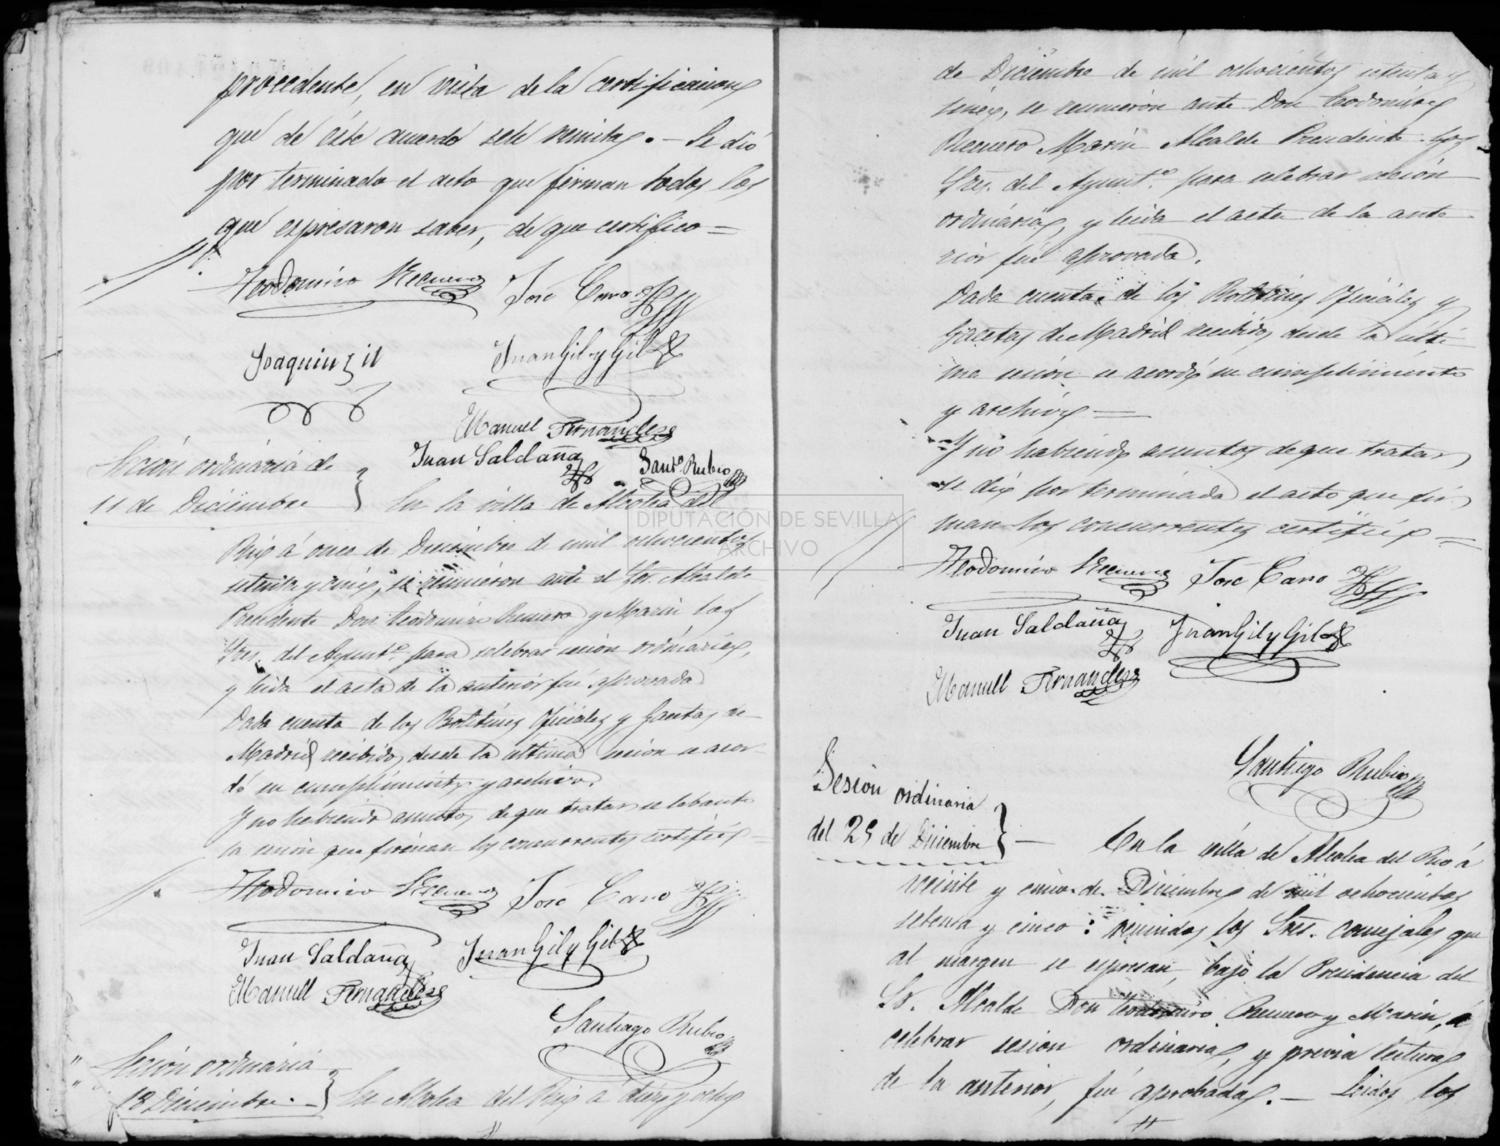 procedente, en vista de la certificacion
que de éste acuerdo sele remita. — Se dió
por terminado el acto que firman todos los
que espresaron saber, de que certifico =
Teodomiro Recuero José Cano
Joaquin Gil Juan Gil y Gil
Manuel Fernandez
Juan Saldaña Sant.º Rubio
Seción ordinária de
11 de Diciembre
En la villa de Alcolea del
Rio á once de Diciembre de mil ochocientos
setenta y cinco, se reunieron ante el Sor. Alcalde
Presidente Don Teodomiro Recuero y Marin los
Sres. del Ayunt.º para celebrar sesion ordinária,
y leida el acta de la anterior fué aprovada
Dada cuenta de los Boletines Oficiales y Gacetas de
Madrid recibidos desde la ultima secion se acor
dó su cumplimiento y archivo.
Y no habiendo asuntos de que tratar se lebantó
la secion que firman los concurrentes certifico =
Teodomiro Recuero José Cano
Juan Saldaña Juan Gil y Gil
Manuel Fernandez
Santiago Rubio
Seción ordinária
18 Diciembre.
En Alcolea del Rio á diez y ocho
de Diciembre de mil ochocientos setenta y
cinco, se reunieron ante Don Teodomiro
Recuero Marin Alcalde Presidente los
Sres. del Ayunt.º para celebrar secion
ordinária, y leida el acta de la ante
rior fué aprovada.
Dada cuenta de los Boletines Oficiales y
Gacetas de Madrid recibidos desde la ulti
ma secion se acordó su cumplimiento
y archivo =
Y no habiendo asuntos de que tratar
se dió por terminada el acto que fir
man los concurrentes certifico =
Teodomiro Recuero José Cano
Juan Saldaña Juan Gil y Gil
Manuel Fernandez
Santiago Rubio
Sesión ordinaria
del 25 de Diciembre
— En la villa de Alcolea del Rio á
veinte y cinco de Diciembre de mil ochocientos
setenta y cinco: reunidos los Sres. concejales que
al margen se espresan, bajo la Presidencia del
Sr. Alcalde Don Teodomiro Recuero y Marin, á
celebrar sesion ordinaria, y previa lectura
de la anterior, fué aprobada. — Leidos los
DIPUTACIÓN DE SEVILLA
ARCHIVO